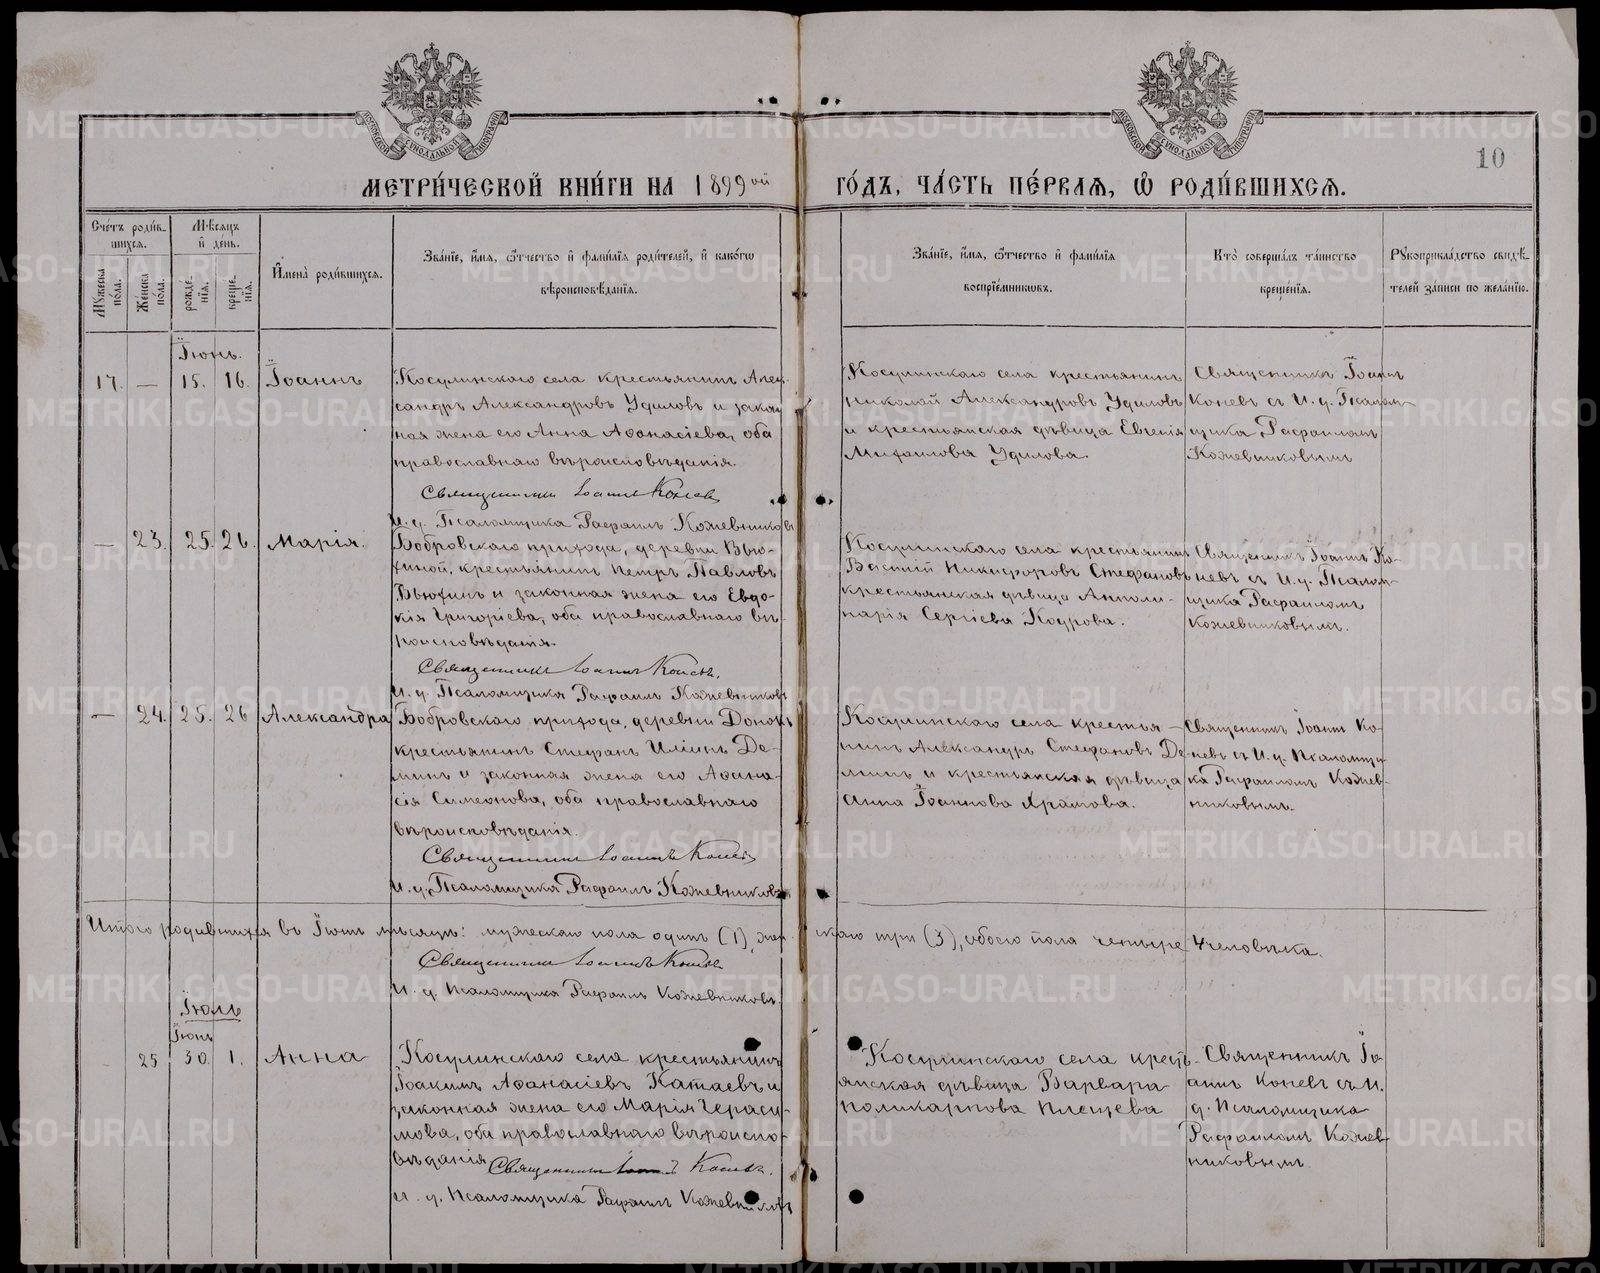 МОСКОВСКОЙ СѴНОДАЛЬНОЙ ТИПОГРАФІИ
МОСКОВСКОЙ СѴНОДАЛЬНОЙ ТИПОГРАФІИ
10
МЕТРИ́ЧЕСКОЙ КНИ́ГИ НА 1899ой ГО́ДЪ, ЧА́СТЬ ПЕ́РВАЯ, Ѡ РОДИ́ВШИХСЯ.
Сче́тъ роди́в-
шихся.
Му́жеска по́ла.
Же́нска по́ла.
Мѣ́сяцъ
и де́нь.
рожде́-
нїя.
креще́-
нїя.
Имена̀ роди́вшихся.
Зва́нїе, и́мя, ѻ́тчество и фами́лїя роди́телей, и како́гѡ
вѣроисповѣ́данїя.
Зва́нїе, и́мя, ѻ́тчество и фами́лїя
воспрїе́мникѡвъ.
Кто̀ соверша́лъ та́инство
креще́нїя.
Рꙋкоприкла́дство свидѣ́-
телей за́писи по жела́нїю.
Іюнь.
17. — 15. 16. Іоаннъ
Косулинскаго села крестьянинъ Алек-
сандръ Александровъ Удиловъ и закон-
ная жена его Анна Аѳанасіева, оба
православнаго вѣроисповѣданія.
Священникъ Іоаннъ Коневъ
И. д. Псаломщика Рафаилъ Кожевниковъ
Косулинскаго села крестьянинъ
Николай Александровъ Удиловъ
и крестьянская дѣвица Евгенія
Михаилова Удилова.
Священникъ Іоаннъ
Коневъ съ И. д. Псалом-
щика Рафаиломъ
Кожевниковымъ
— 23. 25. 26. Марія.
Бобровскаго прихода, деревни Вью-
хиной, крестьянинъ Петръ Павловъ
Вьюхинъ и законная жена его Евдо-
кія Григоріева, оба православнаго вѣ-
роисповѣданія.
Священникъ Іоаннъ Коневъ.
И. д. Псаломщика Рафаилъ Кожевниковъ
Косулинскаго села крестьянинъ
Василій Никифоровъ Стефановъ
крестьянская дѣвица Аполи-
нарія Сергіева
Священникъ Іоаннъ Ко-
невъ съ И. д. Псалом-
щика Рафаиломъ
Кожевниковымъ.
— 24. 25. 26 Александра
Бобровскаго прихода, деревни
крестьянинъ Стефанъ Иліинъ Де-
минъ и законная жена его Аѳана-
сія Симеонова, оба православнаго
вѣроисповѣданія.
Священникъ Іоаннъ Коневъ
И. д. Псаломщика Рафаилъ Кожевниковъ
Косулинскаго села крестья-
нинъ Александръ Стефановъ Де-
минъ и крестьянская дѣвица
Анна Іоаннова Храмова.
Священникъ Іоаннъ Ко-
невъ съ И. д. Псаломщи-
ка Рафаиломъ Кожев-
никовымъ.
Итого родившихся въ Іюнѣ мѣсяцѣ: мужескаго пола одинъ (1), жен-скаго три (3), обоего пола четыре 4 человѣка.
Священникъ Іоаннъ Коневъ
И. д. Псаломщика Рафаилъ Кожевниковъ.
Іюль
Іюнь
25 30. 1. Анна
Косулинскаго села крестьянинъ
Іоакимъ Аѳанасіевъ Катаевъ и
законная жена его Марія Гераси-
мова, оба православнаго вѣроиспо-
вѣданія Священникъ Іоаннъ Коневъ.
И. д. Псаломщика Рафаилъ Кожевниковъ
Косулинскаго села кресть-
янская дѣвица Варвара
Поликарпова Плещева
Священникъ Іо-
аннъ Коневъ съ И.
д. Псаломщика
Рафаиломъ Кожев-
никовымъ.